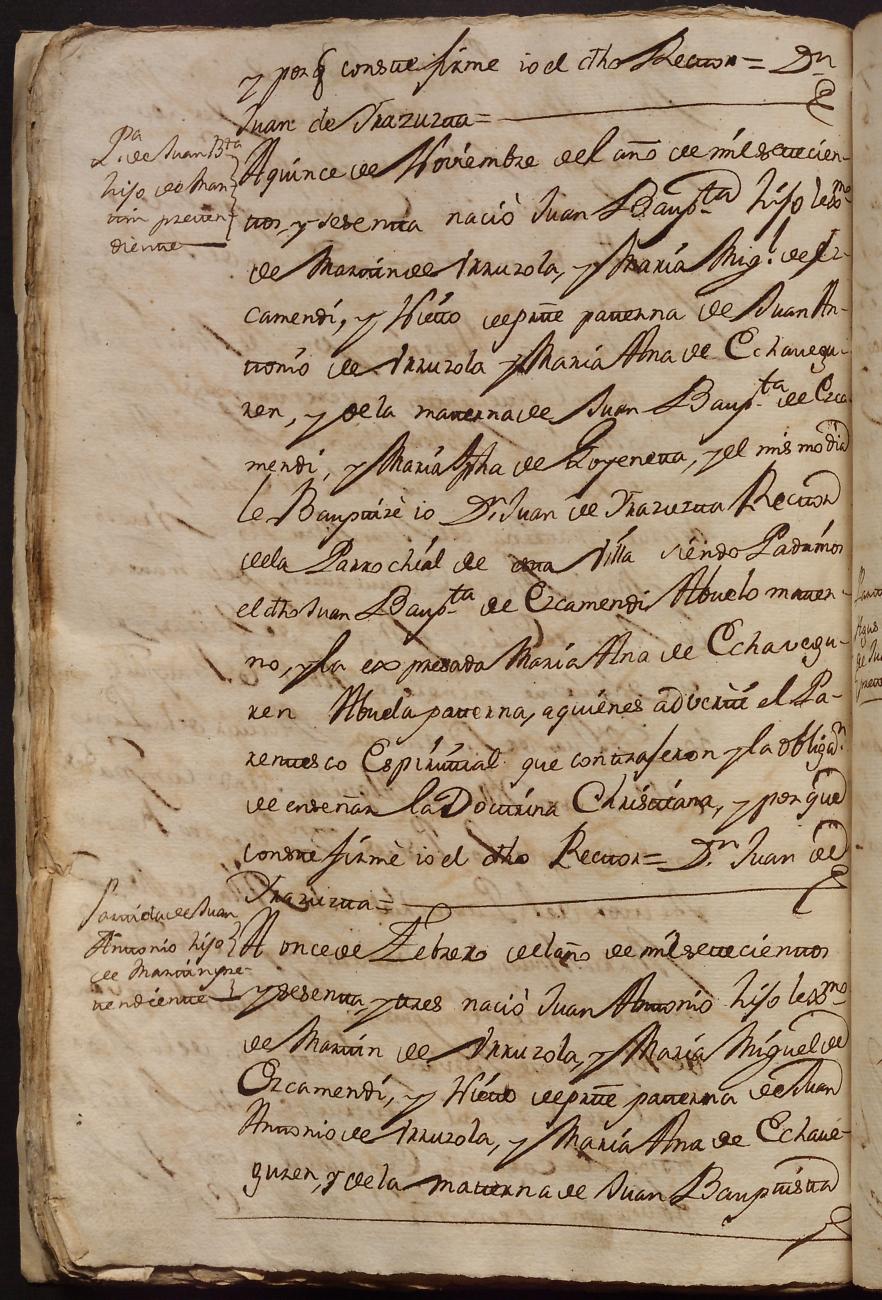 y porq̃ conste firme io el dho Rector = Dn
Juan de Irazuzta =
Pa de Juan Bta
hijo de Mar-
tin preten-
diente
A quince de Noviembre del año de mil setecien-
tos, y sesenta naciò Juan Baupta hijo lexmo
de Martin de Irruzola, y María Migl de Ez-
camendi, y Niétto de ptte patterna de Juan An-
tonio de Irruzola y María Ana de Echavegu-
ren, y de la materna de Juan Baupta de Ezca
mendi, y María de Goyeneta, y el mismo dia
le Bauptizè io Dn Juan de Irazuzta Rector
de la Parrochial de esta Villa siendo Padrinos
el dho Juan Baupta de Ezcamendi Abuelo matter-
no, y la expresada María Ana de Echavegu-
ren Abuela patterna, a quiénes advertí el Pa-
rentesco Espíritual que contrajeron y la obligan
de enseñar la Doctrina Christiana, y por que
conste firmè io el dho Rector = Dn Juan de
Irazuzta =
Partida de Juan
Antonio hijo
de Martin pre-
tendiente
A once de Febrero del año de mil setecientos
y sesenta, y tres naciò Juan Antonio hijo lexmo
de Martin de Irruzola, y María Miguel de
Ezcamendi, y Niétto de ptte patterna de Juan
Antonio de Irruzola, y María Ana de Echave-
guren, y de la materna de Juan Bauptista